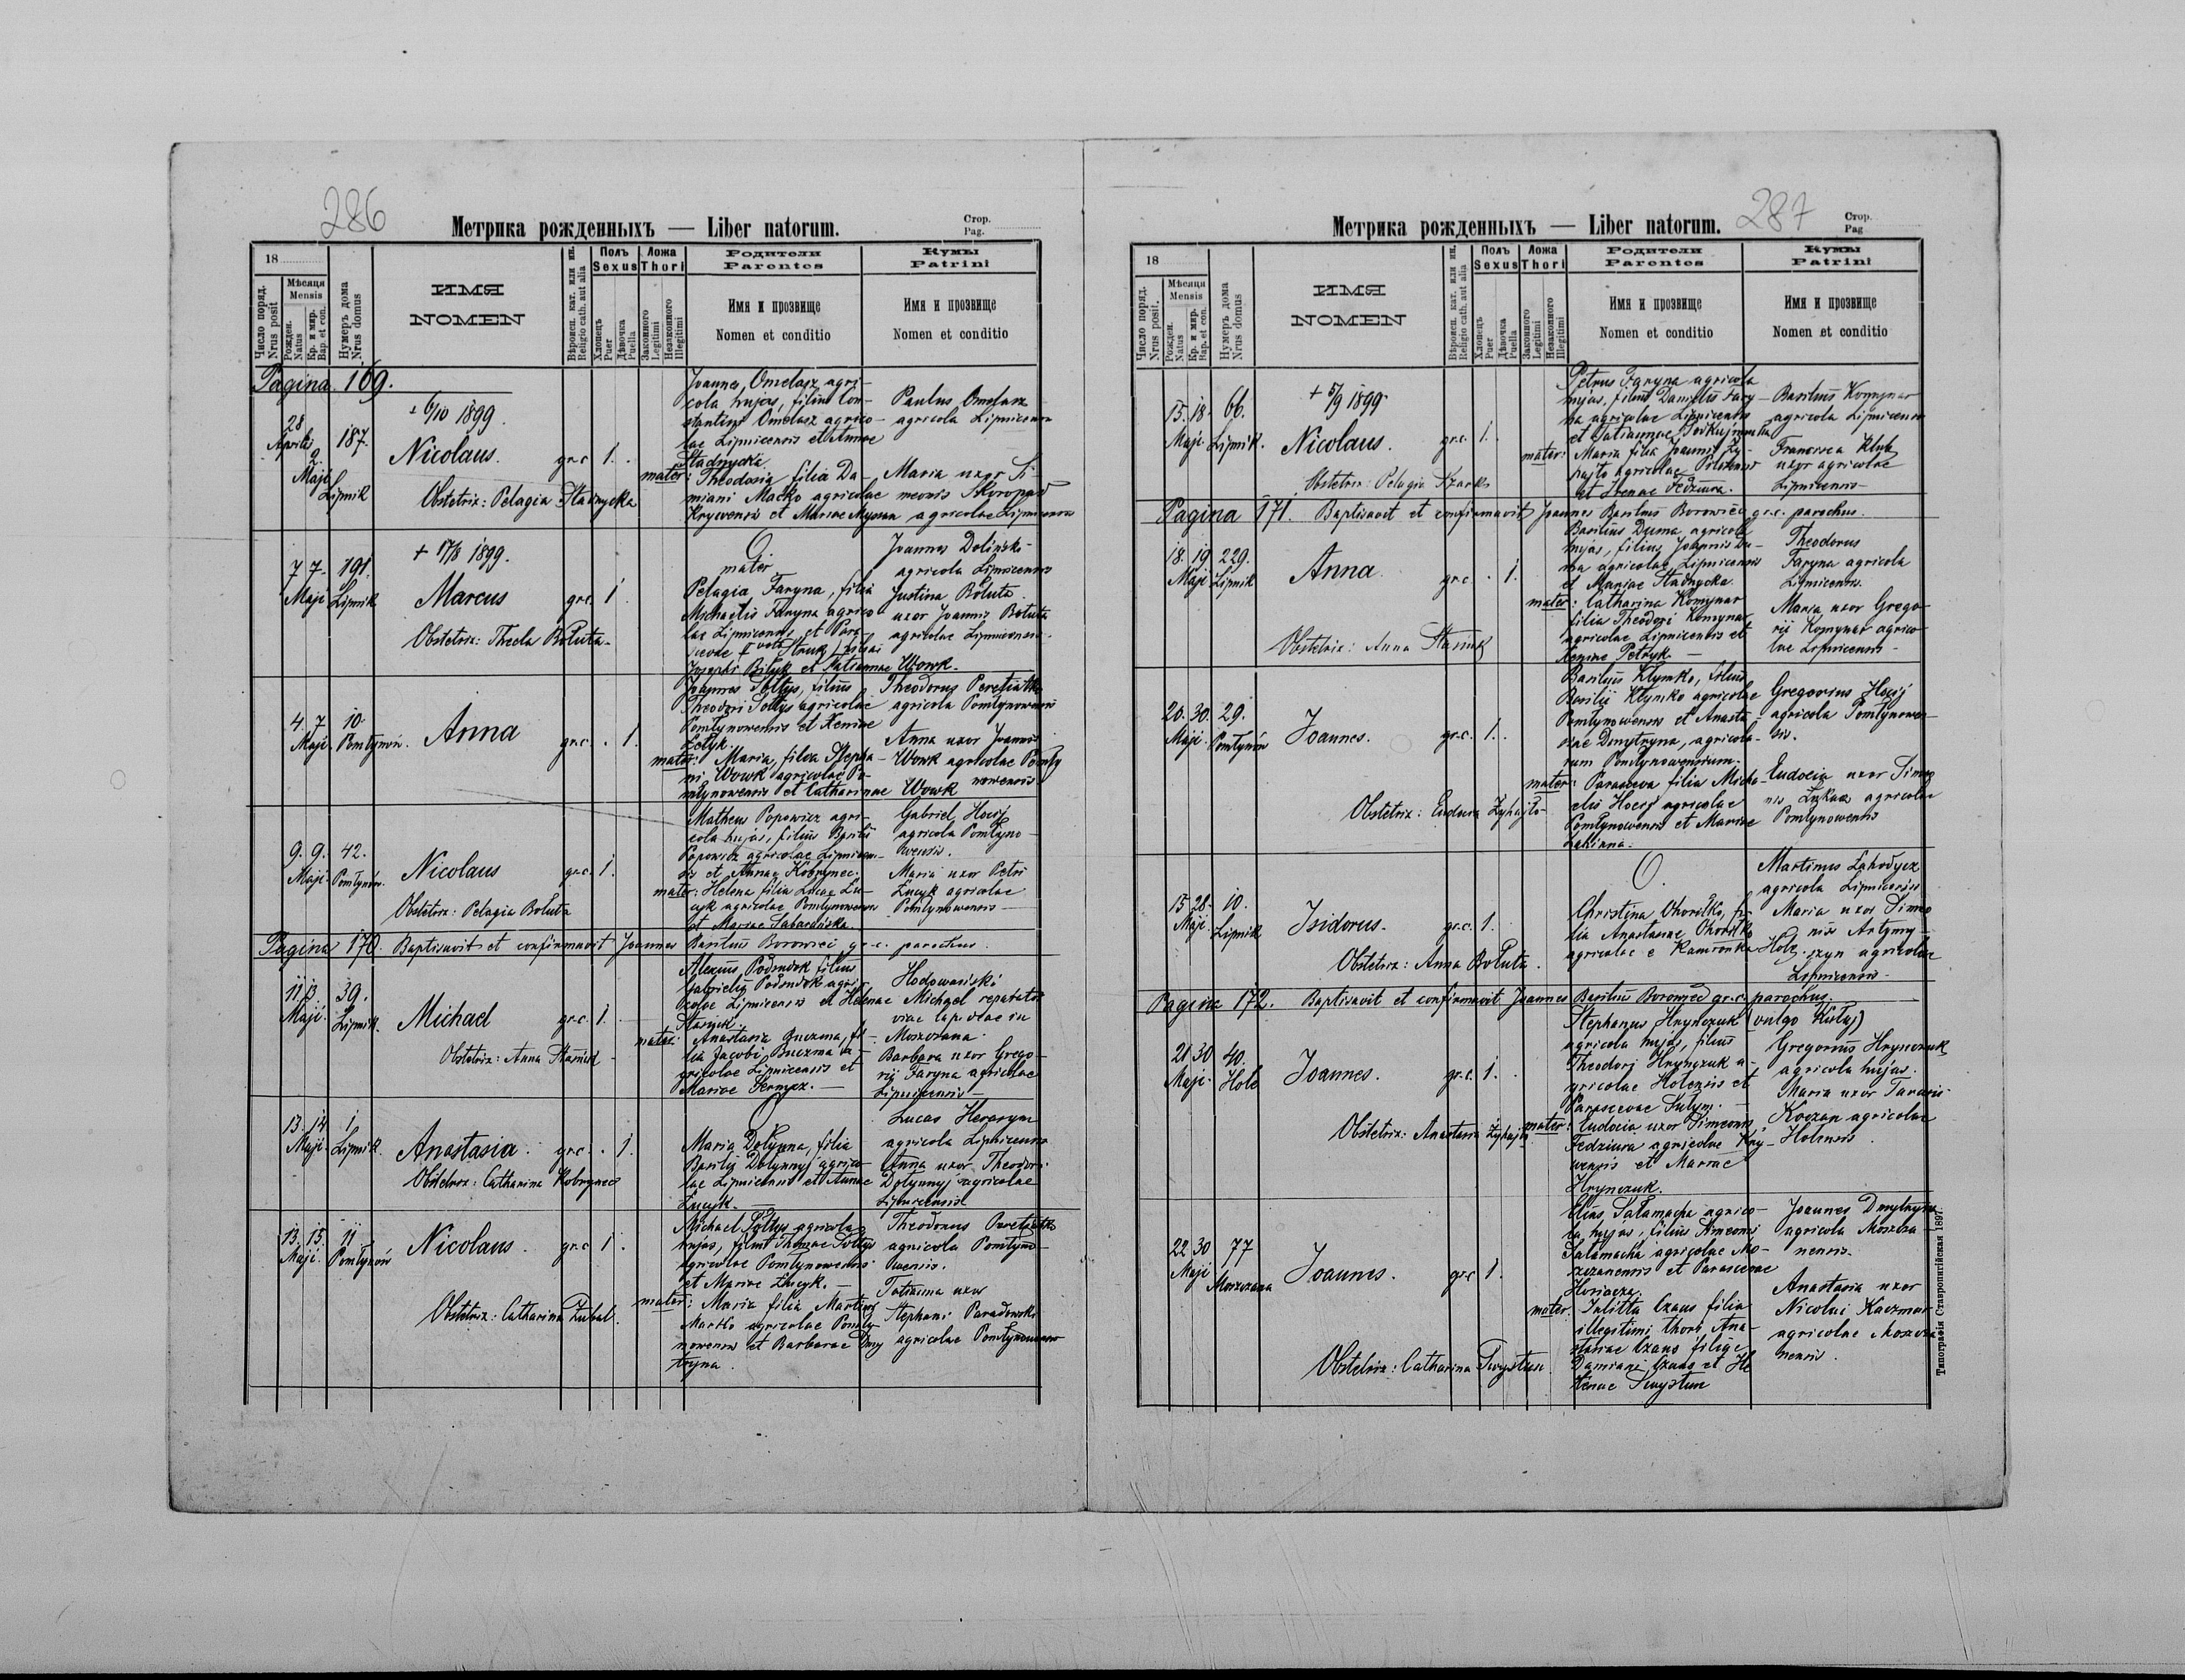 286
Метрика рожденныхъ — Liber natorum.
Стор.
Pag.
18
Число поряд.
Nrus posit
Мѣсяця
Mensis
Рожден.
Natus
Кр. и мир.
Bap. et con.
Нумеръ дома
Nrus domus
ИМЯ
NOMEN
Вѣроисп. кат. или ин.
Religio cath. aut alia
Полъ
Sexus
Хлопецъ
Puer
Дѣвочка
Puella
Ложа
Thori
Законного
Legitimi
Незаконного
Illegitimi
Родители
Parentes
Имя и прозвище
Nomen et conditio
Кумы
Patrini
Имя и прозвище
Nomen et conditio
Pagina 169.
28 Aprilis 9 Maji 187. Lipnik
+ 6/10 1899.
Nicolaus. gr.c 1.
Obstetrix: Pelagia Stadnycka
Joannes Omelasz agri-
cola hujas, filius Con-
stantini Omelasz agrico-
lae Lipnicensis et Annae
Stadnycka.
mater: Theodosia filia Da-
miani Maćko agricolae
et Mariae
Paulus Omelasz
agricola Lipnicensis
Maria uxor Si-
meonis Skoropad
agricolae Lipnicensis
7 7. Maji 191. Lipnik
+ 17/8 1899.
Marcus gr.c. 1
Obstetrix: Thecla Bołuta.
O.
mater
Pelagia Faryna, filia
Michaelis Faryna agrico
lae Lipnicensis et Para-
scevae
Josephi Bilyk et Tatiannae Wowk.
Joannes Doliński
agricola Lipnicensis
Justina Bołuta
uxor Joannis Bołuta
agricolae Lipnicensis.
4. 7. Maji 10. Pomłynów.
Anna gr.c. . 1.
Joannes Sołtys, filius
Theodori Sołtys agricolae
Pomłynowensis et Xeniae
mater: Maria, filia Stepha-
ni Wowk agricolae Po-
młynowensis et Catharinae Wowk
Theodorus Peretiatko
agricola Pomłynowensis
Anna uxor Joannis
Wowk agricolae Pomły
nowensis
9. 9. Maji 42. Pomłynów.
Nicolaus gr.c. 1.
Obstetrix: Pelagia Bołuta
Matheus Popowicz agri-
cola hujas, filius Basilii
Popowicz agricolae Lipnicen-
sis et Annae Kobrynec.
mater: Helena filia Lucae Łu-
cyk agricolae Pomłynowensis
et Mariae
Gabriel Hocij
agricola Pomłyno-
wensis.
Maria uxor Petri
Łucyk agricolae
Pomłynowensis
Pagina 170. Baptisavit et confirmavit Joannes Basilius Borowiec gr.c. parochus.
11. 13 Maji. 39. Lipnik.
Michael gr.c. 1.
Obstetrix: Anna Stasiuk
Alexius filius
Gabrielis agri-
colae Lipnicensis et Helenae
mater: Anastasia Buczma, fi-
lia Jacobi Buczma a-
gricolae Lipnicensis et
Mariae
Hodowański
Michael reparator
viae lapideae in
Moszczana
Barbara uxor Grego-
rij Faryna agricolae
Lipnicensis
13. 14 Maji. 1 Lipnik.
Anastasia. gr.c. . 1.
Obstetrix: Catharina Kobrynec
O
Maria Dołynna, filia
Basilij Dołynnyj agrico-
lae Lipnicensis et Annae
Łucyk.
Lucas
agricola Lipnicensis
Anna uxor Theodori
Dołynnyj agricolae
Lipnicensis
13. 15. Maji. 11 Pomłynów
Nicolaus. gr.c 1.
Obstetrix: Catharina Zubal.
Michael Sołtys agricola
hujas, filius Thomae Sołtys
agricolae Pomłynowensis
et Mariae Łucyk.
mater: Maria filia Martini
agricolae Pomły-
nowensis et Barbarae Dmy
tryna.
Theodorus Peretiatko
agricola Pomłyno-
wensis.
Tatianna uxor
Stephani Paradowski
agricolae Pomłynowensis
287
Метрика рожденныхъ — Liber natorum.
Стор.
Pag
18
Число поряд.
Nrus posit.
Мѣсяця
Mensis
Рожден.
Natus
Кр. и мир.
Bap. et con.
Нумеръ дома
Nrus domus
ИМЯ
NOMEN
Вѣроисп. кат. или ин.
Religio cath. aut alia
Полъ
Sexus
Хлопецъ
Puer
Дѣвочка
Puella
Ложа
Thori
Законного
Legitimi
Незаконного
Illegitimi
Родители
Parentes
Имя и прозвище
Nomen et conditio
Кумы
Patrini
Имя и прозвище
Nomen et conditio
15. 18. Maji 66. Lipnik.
+ 5/9 1899
Nicolaus. gr.c. 1.
Obstetrix: Pelagia
Petrus Faryna agricola
hujas, filius Danielis Fary-
na agricolae Lipnicensis
et Tatiannae
mater: Maria filia Joannis
agricolae
et Irenae Fedziura.
Basilius Komynar
agricola Lipnicensis
Francisca
uxor agricolae
Lipnicensis
Pagina 171. Baptisavit et confirmavit Joannes Basilius Borowiec gr.c. parochus.
18. 19 Maji 229. Lipnik
Anna. gr.c. . 1.
Obstetrix: Anna Stasiuk
Basilius Duma agricola
hujas, filius Joannis Du-
ma agricolae Lipnicensis
et Mariae Stadnycka.
mater: Catharina Komynar
filia Theodori Komynar
agricolae Lipnicensis et
Xeniae Petryk.
Theodorus
Faryna agricola
Lipnicensis.
Maria uxor Grego-
rii Komynar agrico-
lae Lipnicensis
20. 30. Maji 29. Pomłynów
Joannes. gr.c. 1.
Obstetrix: Eudocia
Basilius Klymko, filius
Basilii Klymko agricolae
Pomłynowensis et Anasta-
siae Dmytryna, agricola-
rum Pomłynowensium.
mater: Parasceva filia Micha-
elis Hocij agricolae
Pomłynowensis et Mariae
Gregorius Hocij
agricola Pomłynowen-
sis.
Eudocia uxor Simeo
nis agricolae
Pomłynowensis
15 28. Maji 10. Lipnik
Isidorus. gr.c. 1.
Obstetrix: Anna Bołuta.
O.
Christina fi-
lia Anastasiae
agricolae e Kamionka
Martinus
agricola Lipnicensis
Maria uxor Simeo
nis Artymy-
szyn agricolae
Lipnicensis
Pagina 172. Baptisavit et confirmavit Joannes Basilius Borowiec gr.c. parochus.
21 30 Maji. 40. Hole
Joannes. gr.c. 1.
Obstetrix: Anastasia
Stephanus Hrynczuk (vulgo
agricola hujas, filius
Theodori Hrynczuk a-
gricolae Holensis et
Parascevae
mater: Eudocia uxor Simeonis
Fedziura agricolae
wensis et Mariae
Hrynczuk.
Gregorius Hrynczuk
agricola hujas.
Maria uxor Tarasii
Koczan agricolae
Holensis
22 30 Maji 77 Moszczana
Joannes. gr.c 1.
Obstetrix: Catharina Swystun
Elias Sałamacha agrico-
la hujas, filius Simeonis
Sałamacha agricolae Mo-
szczanensis et Parascevae
mater. Julitta Czaus filia
illegitimi thori, Ana-
stasiae Czaus filiae
Damiani Czaus et He
lenae Swystun
Joannes Dmytryna
agricola Moszcza-
nensis.
Anastasia uxor
Nicolai Kaczmar
agricolae Moszcza
nensis.
Типографія Ставропигійская 1897.